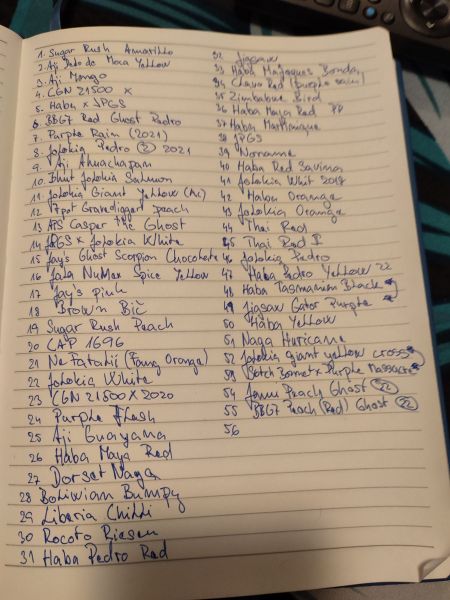 1. Sugar Rush Amarillo
2. Aji Dedo de Moca Yellow
3. Aji Mango
4. CGN 21500 X
5. Haba x JPGS
6. BBG7 Red Ghost Pedro
7. Purple Rain (2021)
8. Jolokia Pedro 2 2021
9. Aji Ahuachapam
10. Bhut Jolokia Salmon
11. Jolokia Giant Yellow
12. 7pot Gravedigger peach
13. Casper the Ghost
14. JPGS x Jolokia White
15. Jay's Ghost Scorpion Chocolate
16. NuMex Spice Yellow
17 Jay's pink
18 Brown
19 Sugar Rush Peach
20 CAP 1696
21 Orange)
22 Jolokia White
23 CGN 21500 X 2020
24 Purple Flash
25 Aji Guayana
26 Haba Maya Red
27 Dorset Naga
28 Boliwian Bumpy
29 Liberia Chilli
30 Rocoto Riesen
31 Haba Pedro Red
32 Jigsaw
33 Haba Bonda
34 Red (purple
35 Zimbabwe Bird
36 Haba Maya Red PP
37 Haba Martinique
38 JPGS
39 Noname
40 Haba Red Savina
41 Jolokia Whit
42 Haba Orange
43 Jolokia Orange
44 Thai Red
45 Thai Red
46 Jolokia Pedro
47 Haba Pedro Yellow 22
48 Haba Tasmanian Black
49 Jigsaw Gator Purple
50 Haba Yellow
51 Naga Huricane
52 Jolokia giant yellow cross
53 Scotch Bonnet x Purple Massacre
54 Peach Ghost 22
55 BBG7 Peach (Red) Ghost 22
56